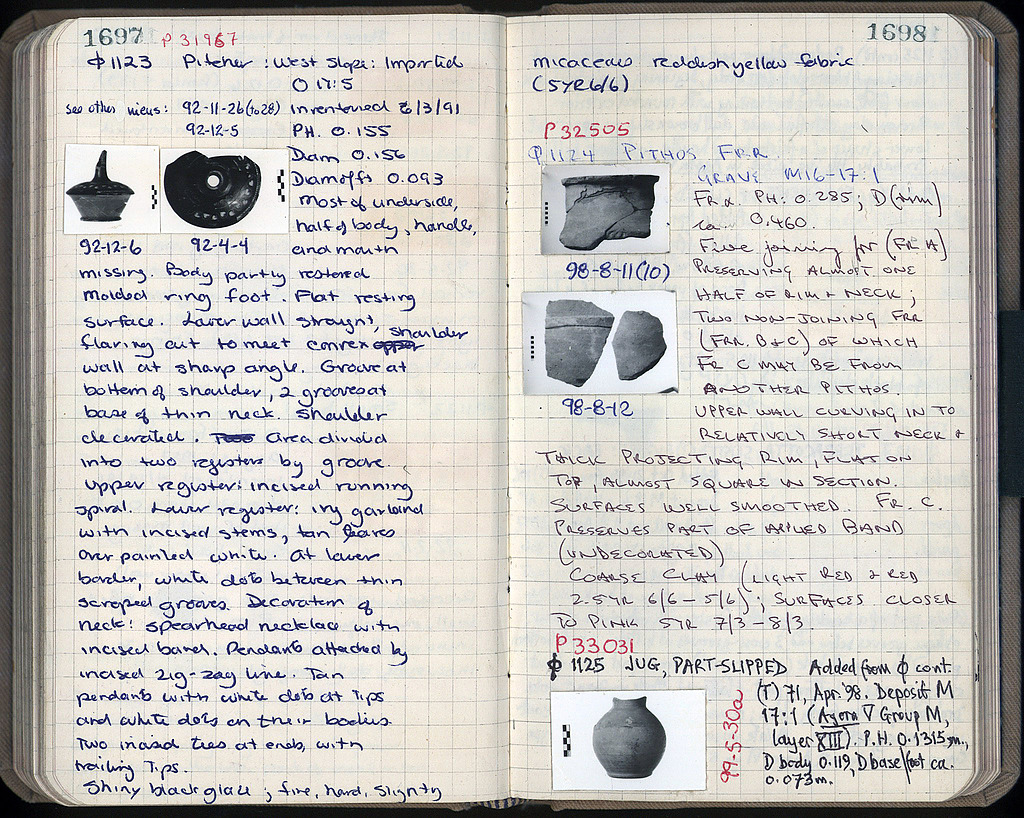 1697 P 31967
φ1123 Pitcher : West Slope : Imported
O 17:5
see other views: 92-11-26 (to 28) Inventoried 6/3/91
92-12-5 PH. 0.155
Diam 0.156
Diam of ft 0.093
Most of underside,
half of body, handle,
92-12-6 92-4-4 and mouth
missing. Body partly restored
Molded ring foot. Flat resting
surface. Lower wall straight,
flaring out to meet convex shoulder
wall at sharp angle. Groove at
bottom of shoulder, 2 grooves at
base of thin neck. Shoulder
decorated. Area divided
into two registers by groove.
Upper register: incised running
spiral. Lower register: ivy garland
with incised stems, tan leaves
over painted white. At lower
border, white dots between thin
scraped grooves. Decoration of
neck: spearhead necklace with
incised band. Pendants attached by
incised zig-zag line. Tan
pendants with white dots at tips
and white dots on their bodies.
Two incised ties at ends, with
trailing tips.
Shiny black glaze; fine, hard, slightly
1698
micaceous reddish yellow fabric
(5YR 6/6)
P 32505
φ1124 PITHOS FRR.
GRAVE M16-17:1
FR a. PH: 0.285; D (rim)
ca. 0.460.
Five joining frr (FR A)
PRESERVING ALMOST ONE
98-8-11 (10)
HALF OF RIM + NECK;
TWO NON-JOINING FRR
(FRR. B+C) OF WHICH
FR C MAY BE FROM
ANOTHER PITHOS.
98-8-12
UPPER WALL CURVING IN TO
RELATIVELY SHORT NECK +
THICK PROJECTING RIM, FLAT ON
TOP, ALMOST SQUARE IN SECTION.
SURFACES WELL SMOOTHED. FR. C.
PRESERVES PART OF APPLIED BAND
(UNDECORATED)
COARSE CLAY (LIGHT RED + RED
2.5YR 6/6 – 5/6); SURFACES CLOSER
TO PINK 5YR 7/3 – 8/3.
P 33031
φ 1125 JUG, PART-SLIPPED Added from φ cont.
(T) 71, Apr. '98. Deposit M
17:1 (Agora V Group M,
layer XIII). P.H. 0.1315 m.,
D body 0.119, D base/foot ca.
0.073m.
99-5-30a